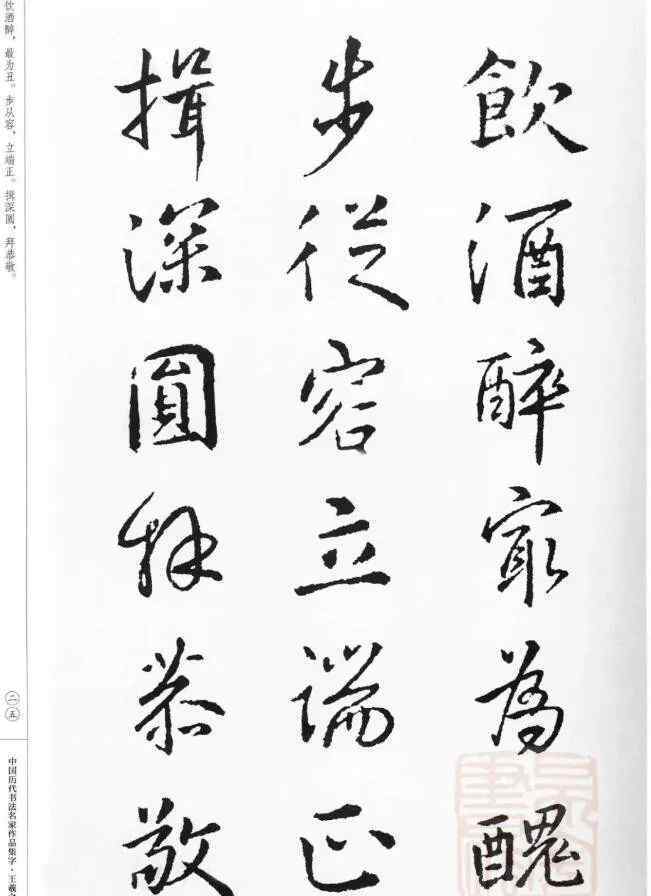 飲酒醉寂為醜
步從容立端正
揖深圓拜恭敬
饮酒醉，最为丑。步从容，立端正。揖深圆，拜恭敬。
二五
中国历代书法名家作品集字·王羲之